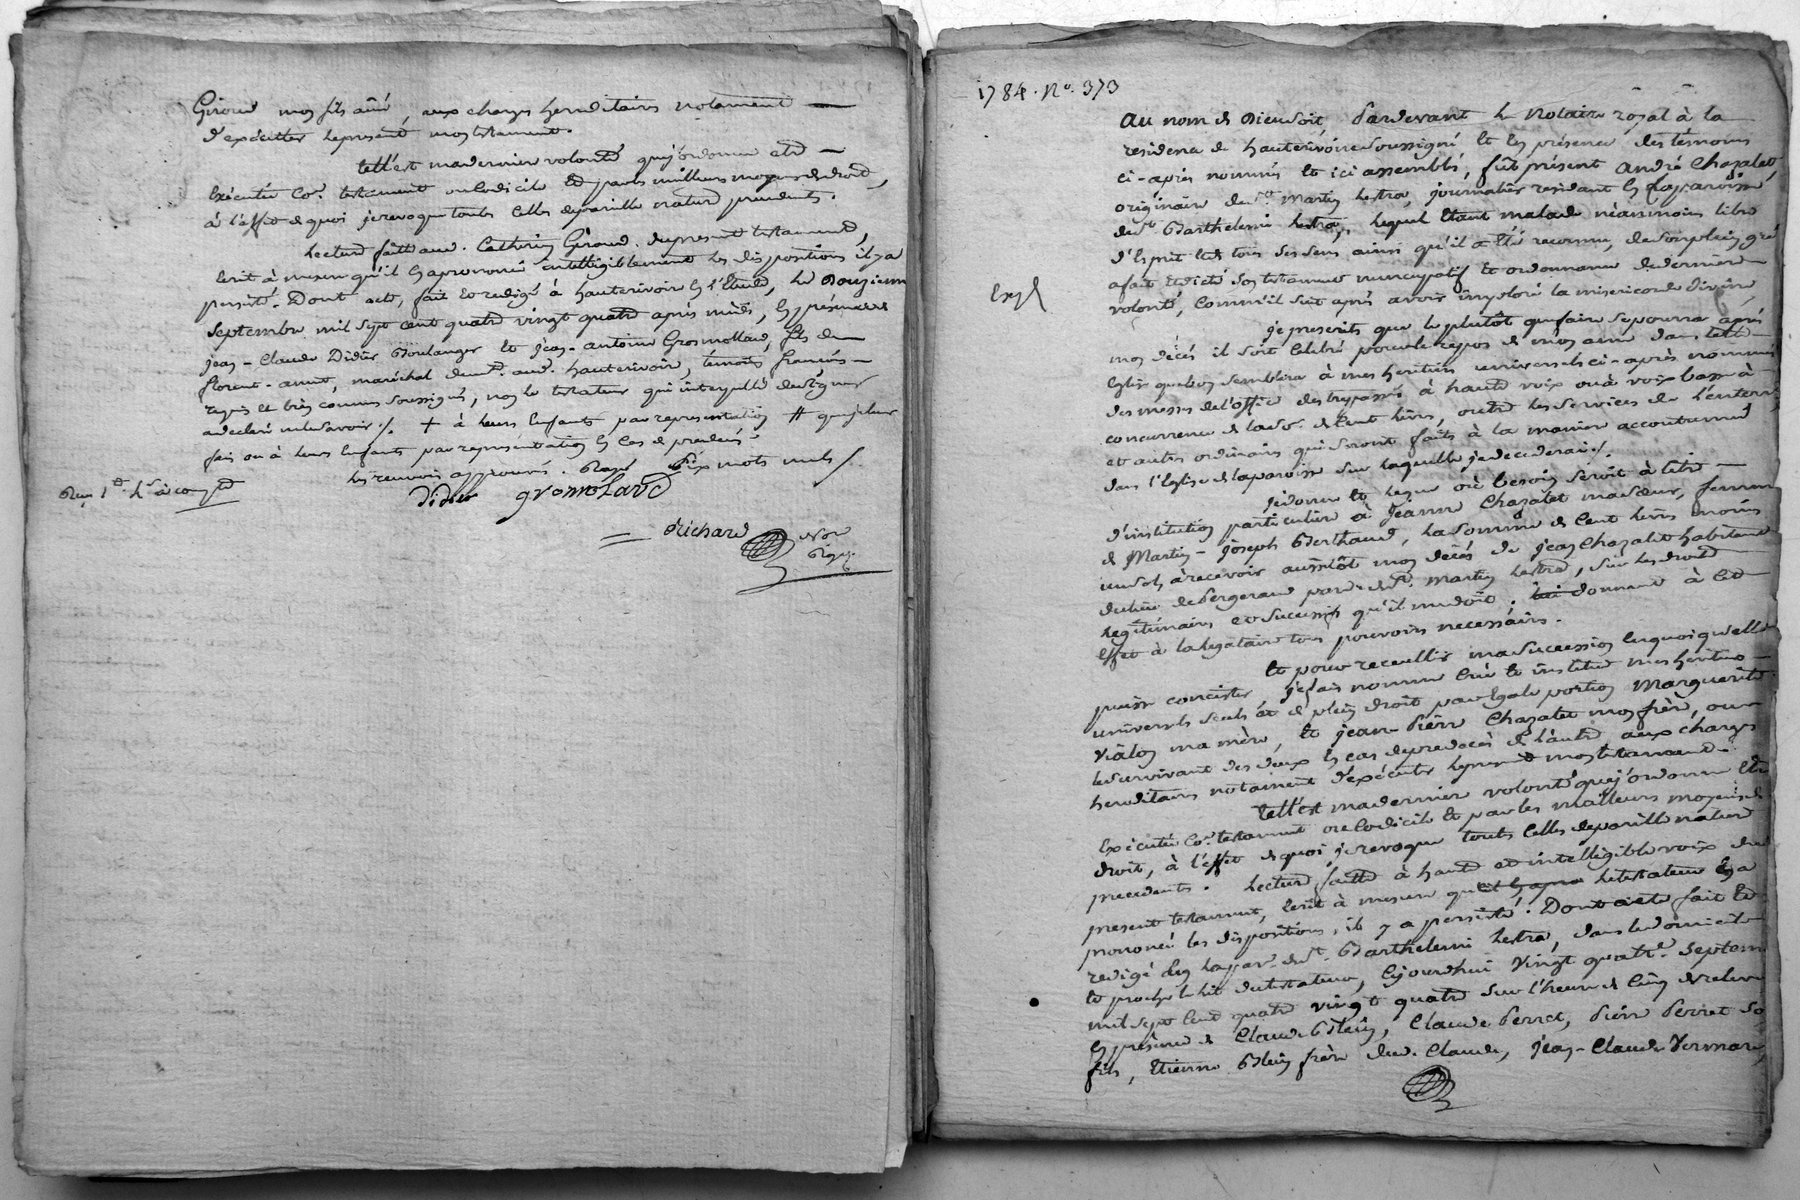 Giroud mon fils ainé, aux charges hereditaires notament
d'executter le present mon testament.
tell'est ma derniere volonté que j'ordonne etre
Exécutée Coe. testament ou Codicile et par les meilleurs moyens de droit,
à l'effet de quoi je revoque toutes celles de pareille nature precedentes.
Lecture faitte aud. Catherin Giroud du present testament,
Ecrit à mesure qu'il en a prononcé intelligiblement les dispositions il y a
persisté. Dont acte, fait et redigé à hauterivoire En l'Etude, le Douzieme
Septembre mil sept cent quatre vingt quatre après midi, En présence de
jean-Claude Didier Boulanger et jean-antoine Grosmollard, fils de
florent-aimé, maréchal dem.t aud. hauterivoire, témoins françois
requis et bien connus soussignés, non le testateur qui interpellé de signer
a declaré ne le savoir ./. + à leurs Enfants par representation # que je leur
fais ou à leurs Enfants par représentation En Cas de predecès
les renvois approuvés. Rayé Six mots nuls /
Reçu 1d. Ls. à compte
didier gromolard
Richard
Nore
Royal
1784. No. 373
Au nom de Dieu soit, Pardevant le Notaire royal à la
residence de hauterivoire soussigné et En présence des témoins
ci-après nommés et ici assemblés, fût présent andré Chazalet,
originaire de St. Martin Lestra, journalier residant En la paroisse
de St. Barthelemi Lestra, lequel Etant malade néanmoins libre
d'Esprit et de tous ses sens ainsi qu'il a Eté reconnu, de son plein gré
a fait et dicté son testament nuncupatif et ordonnance de derniere
volonté, Comm'il suit après avoir imploré la misericorde divine,
Expé
je prescris que le plutôt que faire se pourra après
mon décès il soit Celebré pour le repos de mon ame dans telle
Eglise que bon semblera à mes heritiers universels ci-après nommés
des messes de l'office des trepassés à haute voix ou à voix basse à
concurrence de la so. de Cent livres, outre les services de l'enterr.
et autres ordinaires qui seront faits à la maniere accoutumée
dans l'Eglise de la paroisse sur laquelle je decederai ./.
je donne et legue où besoin seroit à titre
d'institution particuliere à jeanne Chazalet ma sœur, femme
de Martin-joseph Berthaud, la somme de Cent livres moins
un sol, à recevoir aussitôt mon decès de jean Chazalet habitant
du lieu de Bergeraud par. de St. Martin Lestra, sur les droits
legitimaires et successifs qu'il me doit. lui donnant à cet
effet à la legataire tous pouvoirs necessaires.
Et pour recueillir ma succession En quoi qu'elle
puisse concister, je fais nomme Crée et institue mes heritiers
universels seuls et de plein droit par Egale portion Marguerite
Viâlon ma mère, et jean-Pierre Chazalet mon frère, ou
le survivant des deux En cas de predecès de l'autre aux charges
hereditaires notament d'exécuter le present mon testament.
tell'est ma derniere volonté que j'ordonne Etre
Exécutée Coe. testament ou Codicile et par les meilleurs moyens de
droit, à l'effet de quoi je revoque toutes Celles de pareille nature
precedentes. Lecture faitte à haute et intelligible voix du
present testament, Ecrit à mesure que le testateur En a
prononcé les dispositions, il y a persisté. Dont acte fait et
redigé En la par. de St. Barthelemi Lestra, dans le domicile
et proche le lit du testateur, Cejourd'hui vingt quatre. Septem
mil sept cent quatre vingt quatre sur l'heure de Cinq de relevée
En présence de Claude Blein, Claude Perret, Pierre Perret so
fils, Etienne Blein frère dud. Claude, jean-Claude Vermare,